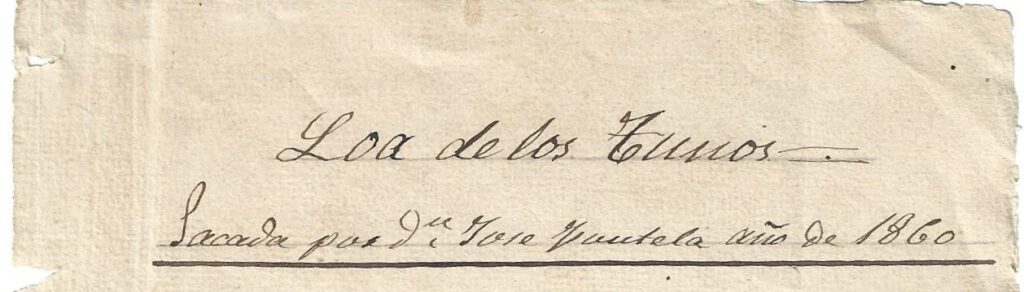 Loa de los Tunos —.
Sacada por dn. Jose año de 1860